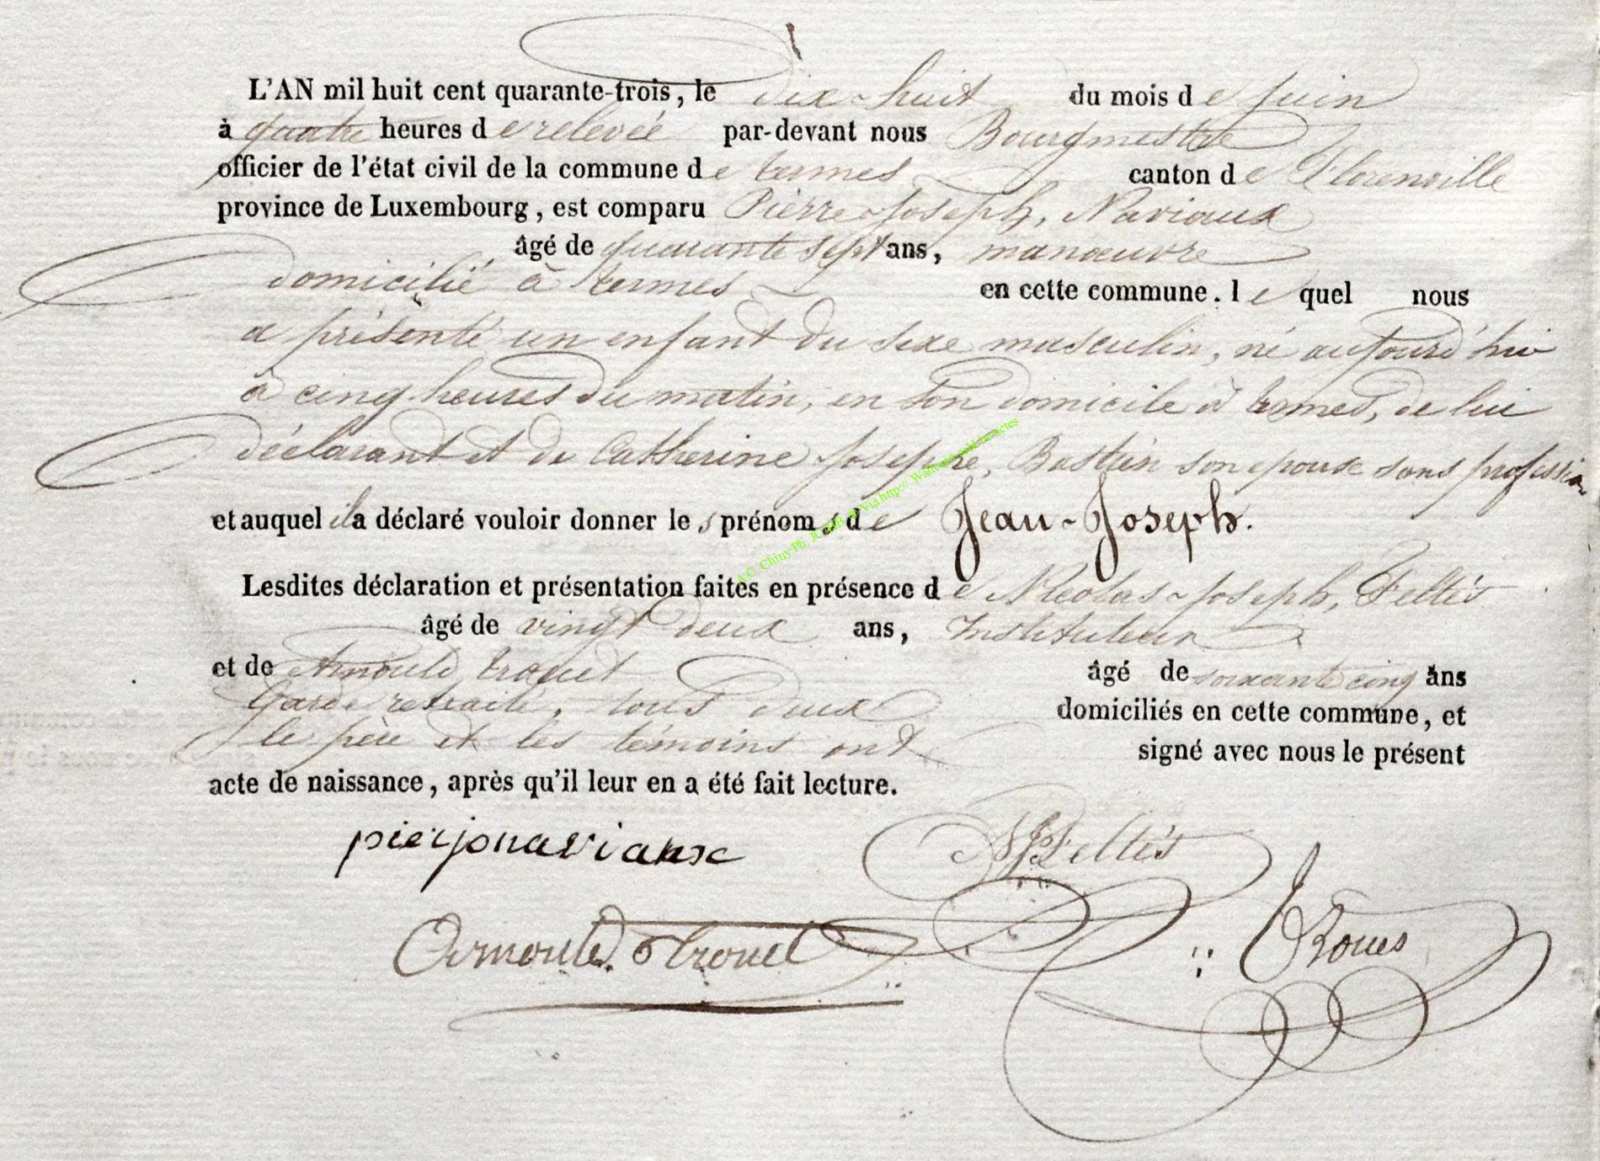 L'AN mil huit cent quarante-trois, le dix-huit du mois de juin
à quatre heures de relevée par-devant nous Bourgmestre
officier de l'état civil de la commune de termes canton de Florenville
province de Luxembourg, est comparu Pierre-Joseph, Naviaux
âgé de quarante sept ans, manœuvre
domicilié à termes en cette commune. le quel nous
a présenté un enfant du sexe masculin, né aujourd'hui
à cinq heures du matin, en son domicile à termes, de lui
déclarant et de Catherine Josephe, Bastin son epouse sans profession
et auquel il a déclaré vouloir donner les prénoms de Jean-Joseph.
Lesdites déclaration et présentation faites en présence de Nicolas-Joseph, Feltés
âgé de vingt deux ans, Instituteur
et de Arnould trouet âgé de soixante cinq ans
Garde retraité, tous deux domiciliés en cette commune, et
le père et les témoins ont signé avec nous le présent
acte de naissance, après qu'il leur en a été fait lecture.
pierjonaviaux
NJFeltés
Arnould trouet